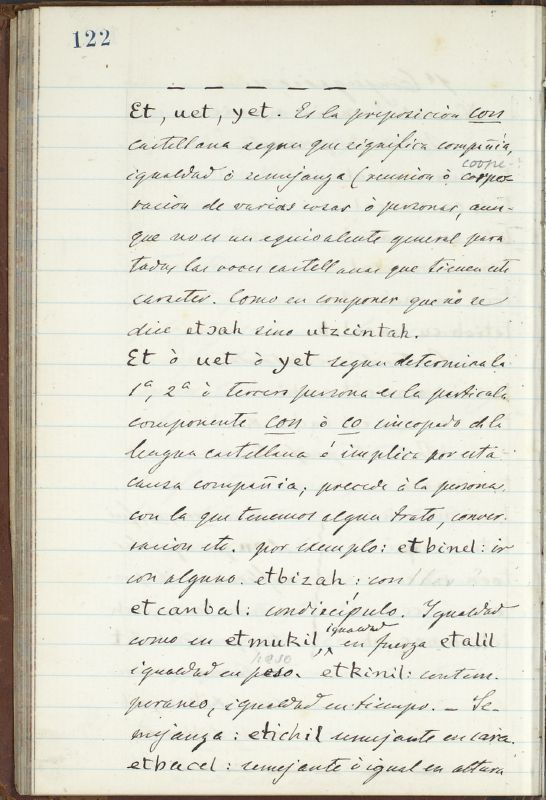 122
— — — — —
Et, uet, yet. Es la preposición con
castellana segun que significa compañia,
igualdad ó semejanza (reunion ó coope-
racion de varias cosas ó personas, aun-
que no es un equivalente general para
todas las voces castellanas que tienen este
caracter. Como en componer que no se
dice etɔah sino utzcintah.
Et ó uet ó yet segun determina la
1ª, 2ª ó tercera persona es la particula
componente con ó co sincopado de la
lengua castellana é implica por esta
causa compañia; precede á la persona
con la que tenemos algun trato, conver-
sacion etc. por exemplo: etbinel: ir
con alguno. etbizah: con
etcanbal: condiscípulo. Igualdad
como en etmukil, igualdad en fuerza etalil
igualdad en peso. peso etkinil: contem-
poraneo, igualdad en tiempo. — Se-
mejanza: etichil semejante en cara.
etbacel: semejante ó igual en altura